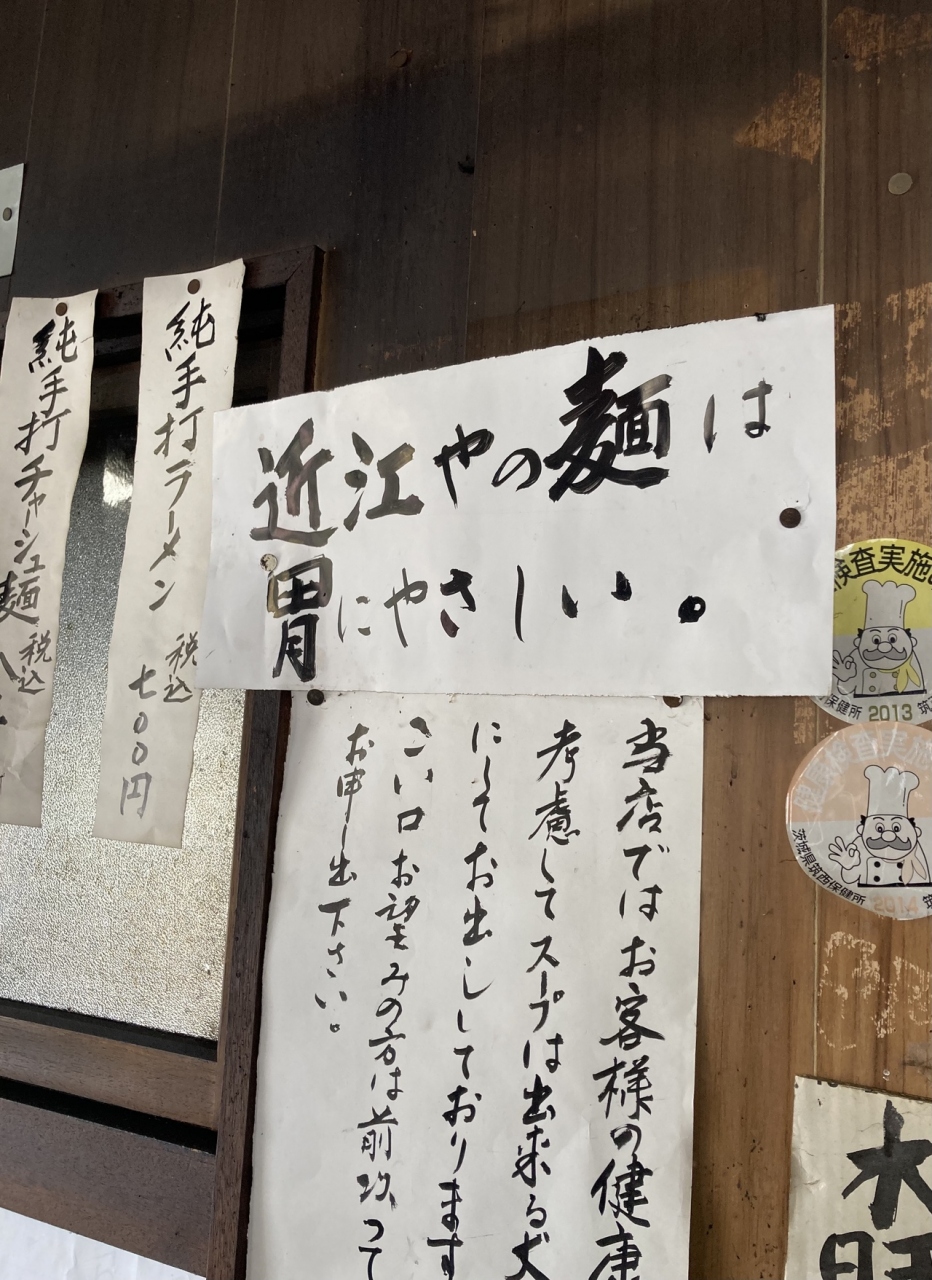 近江やの麺は
胃にやさしい。
当店ではお客様の健康
考慮してスープは出来る
にしてお出ししております
こい口お望みの方は前以って
お申し出下さい。
純手打ラーメン
税込
七〇〇円
純手打チャーシュ麺
税込
検査実施
保健所 2013 筑
検査実施
茨城県筑西保健所 2014 筑